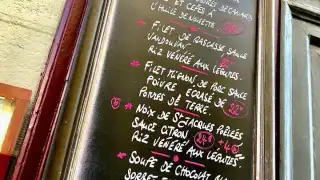 ET CÈPES À
L'HUILE DE NOISETTE
* FILET DE BASCASSE SAUCE
VANDOUVAN
RIZ VÉNÉRÉ AUX LÉGUMES.
* FILET MIGNON DE PORC SAUCE
POIVRE ECRASÉ DE
POMMES DE TERRE.
* NOIX DE ST-JACQUES POÊLÉES
SAUCE CITRON
RIZ VÉNÉRÉ AUX LÉGUMES.
* SOUPE DE CHOCOLAT
SORBET